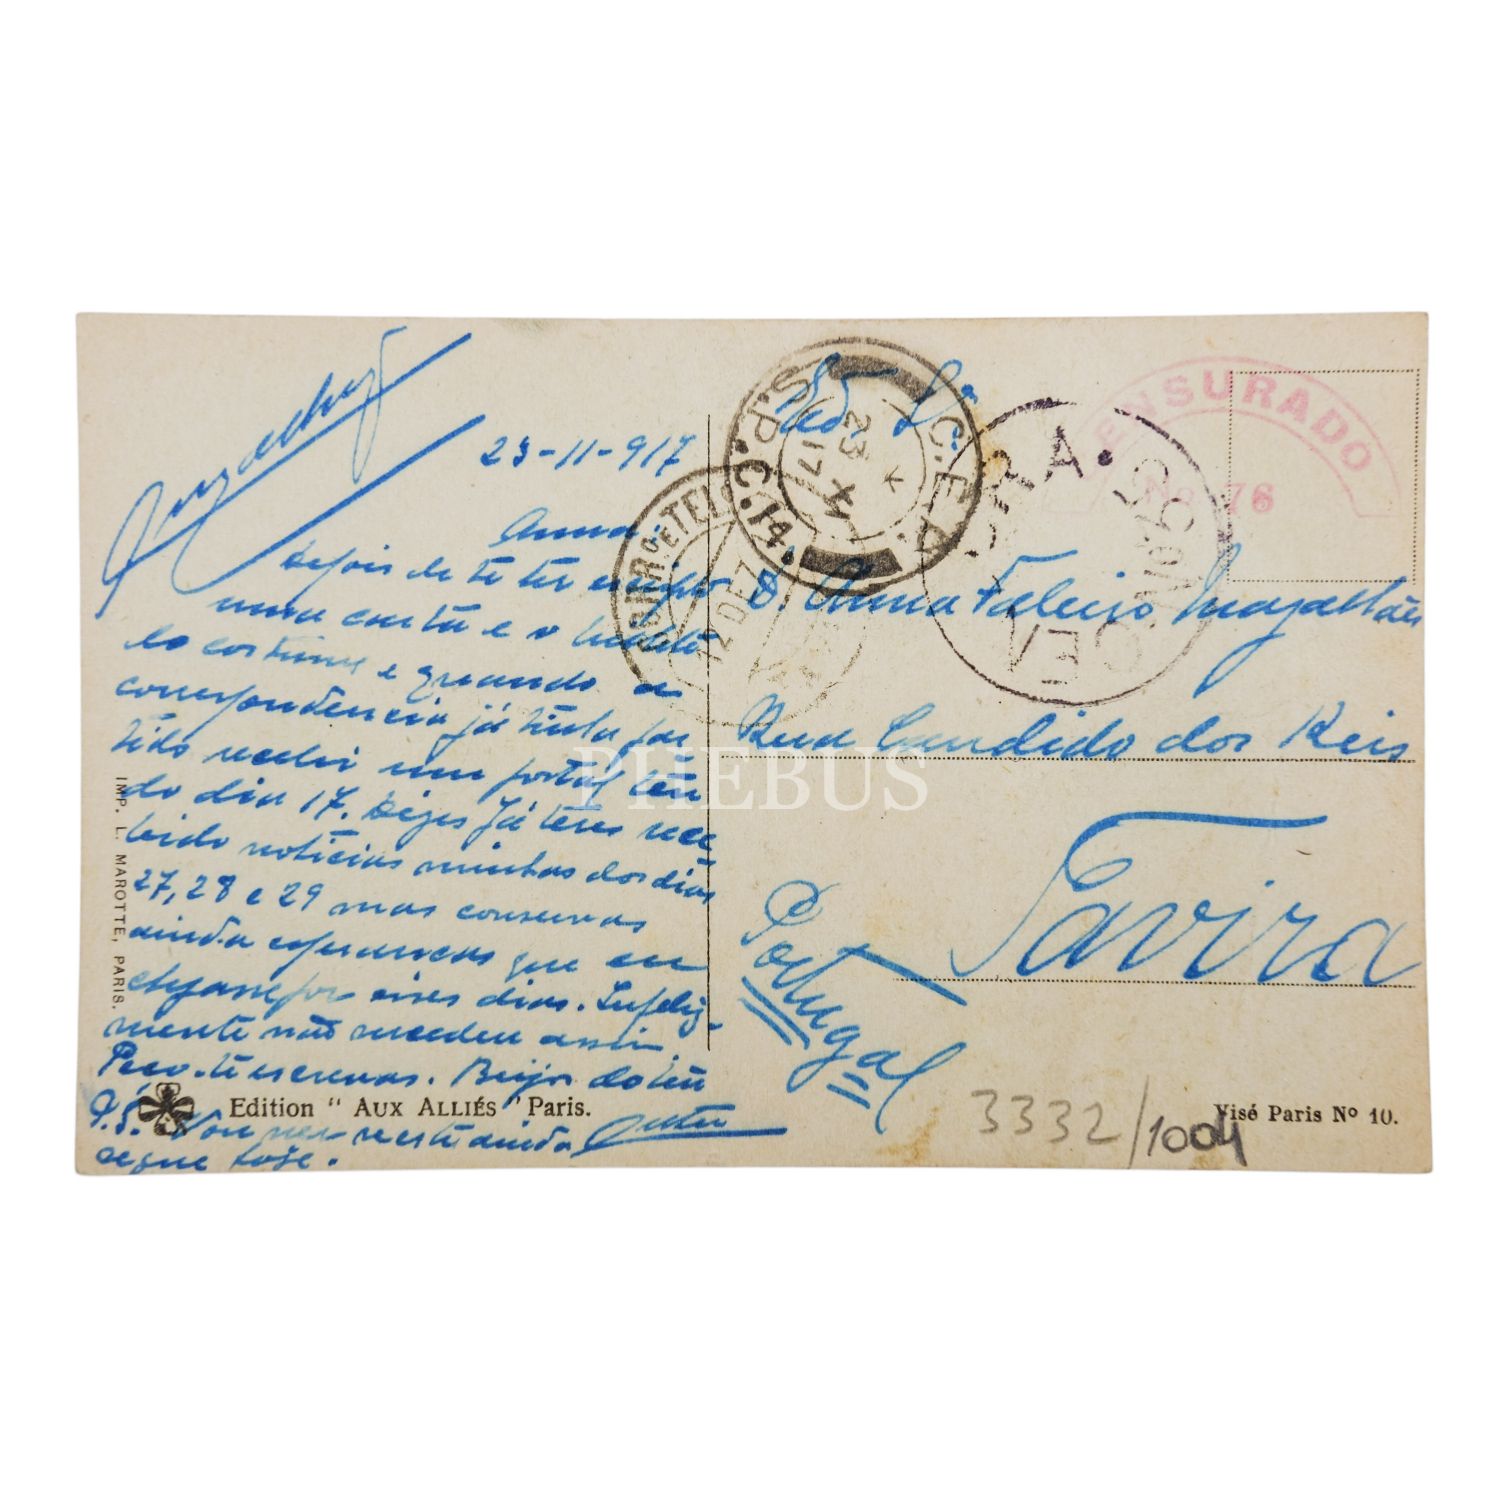 23-11-917
Anna:
Depois de te ter escripto
uma carta e o bilhete
do costume e quando a
correspondencia já tinha par
tido recebi um postal teu
do dia 17. Dizes já teres rece
bido noticias minhas dos dias
27, 28 e 29 mas conservas
ainda esperanças que eu
chegasse por esses dias. Infeliz-
mente não succedeu assim
Peço-te escrevas. Beijos do teu
P.S. Vou ver se esta ainda
segue hoje.
IMP. L. MAROTTE, PARIS.
Edition " AUX ALLIÉS " Paris.
S.P.C. 14. C.E.P.A.
23 XI 17
CORR. E TELEG.
12 DEZ
CENSURA.
CENSURADO
No 76
D. Anna Faleiro Magalhães
Rua Candido dos Reis
Tavira
Portugal
3332/1004
Visé Paris No 10.
PHEBUS